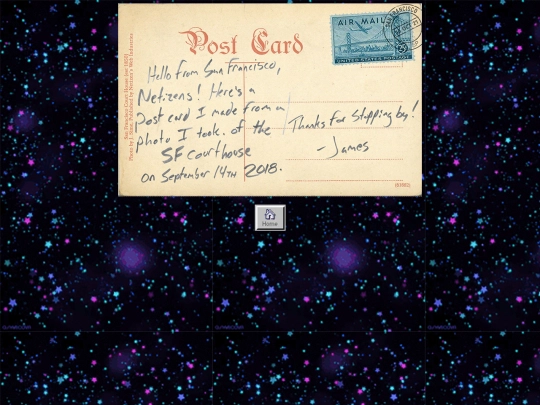 AIR MAIL
SAN FRANCISCO
UNITED STATES POSTAGE
Post Card
Hello from San Francisco,
Netizens! Here's a
Post card I made from a
photo I took. of the
SF courthouse
on September 14TH 2018.
Thanks for Stopping by!
-James
Home